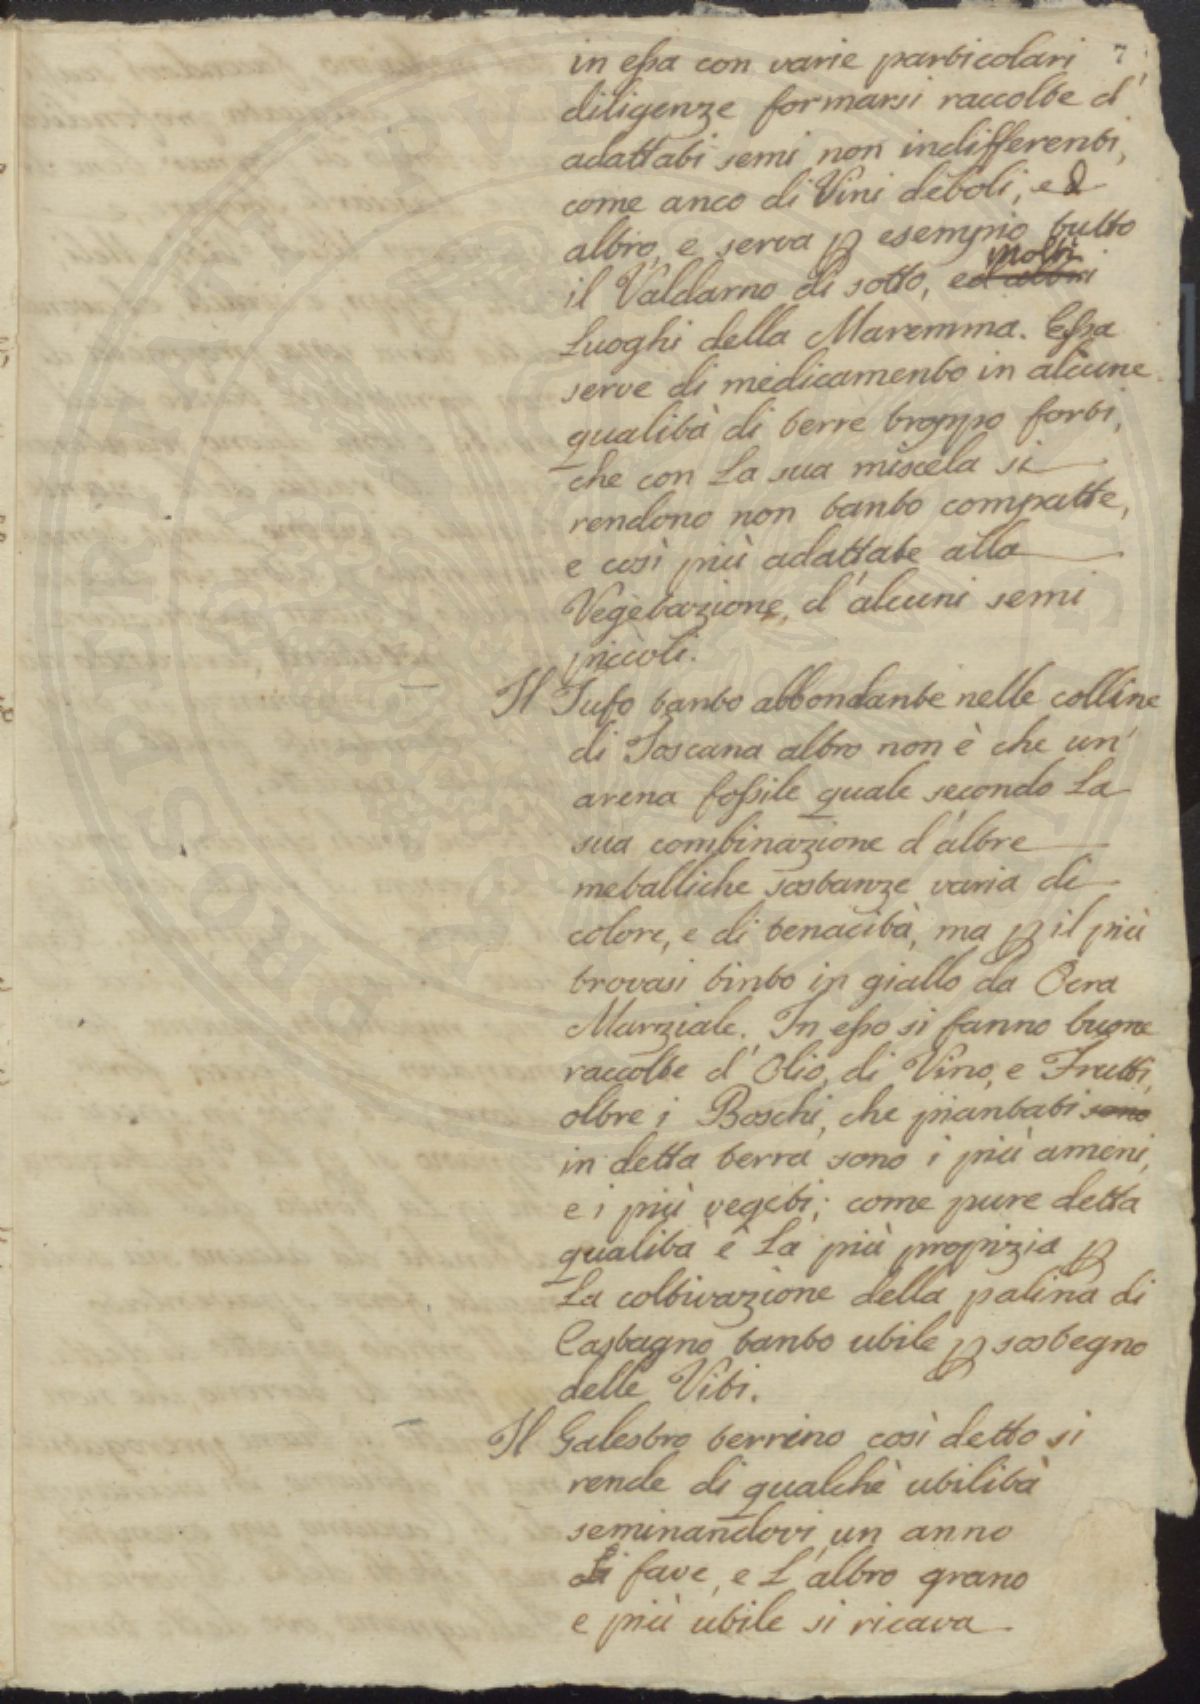 7
in eſsa con varie particolari
diligenze formarsi raccolte d'
adattati semi non indifferenti,
come anco di Vini deboli, ed
altro, e serva p esempio tutto
molti
il Valdarno di sotto, ed altri
Luoghi della Maremma. Eſsa
serve di medicamento in alcune
qualità di terre troppo forti,
che con La sua miscela si
rendono non tanto compatte,
e così più adattate alla
Vegetazione, d'alcuni semi
piccoli.
Il Tufo tanto abbondante nelle colline
di Toscana altro non è che un'
arena foſsile quale secondo La
sua combinazione d'altre
metalliche sostanze varia di
colore, e di tenacità, ma p il più
trovasi tinto in giallo da Ocra
Marziale. In eſso si fanno buone
raccolte d'Olio, di Vino, e Frutti,
oltre i Boschi, che piantati sono
in detta terra sono i più ameni,
e i più vegeti; come pure detta
qualità è La più propizia p
La coltivazione della palina di
Castagno tanto utile p sostegno
delle Viti.
Il Galestro terrino così detto si
rende di qualche utilità
seminandovi un anno
Li fave, e L'altro grano
e più utile si ricava